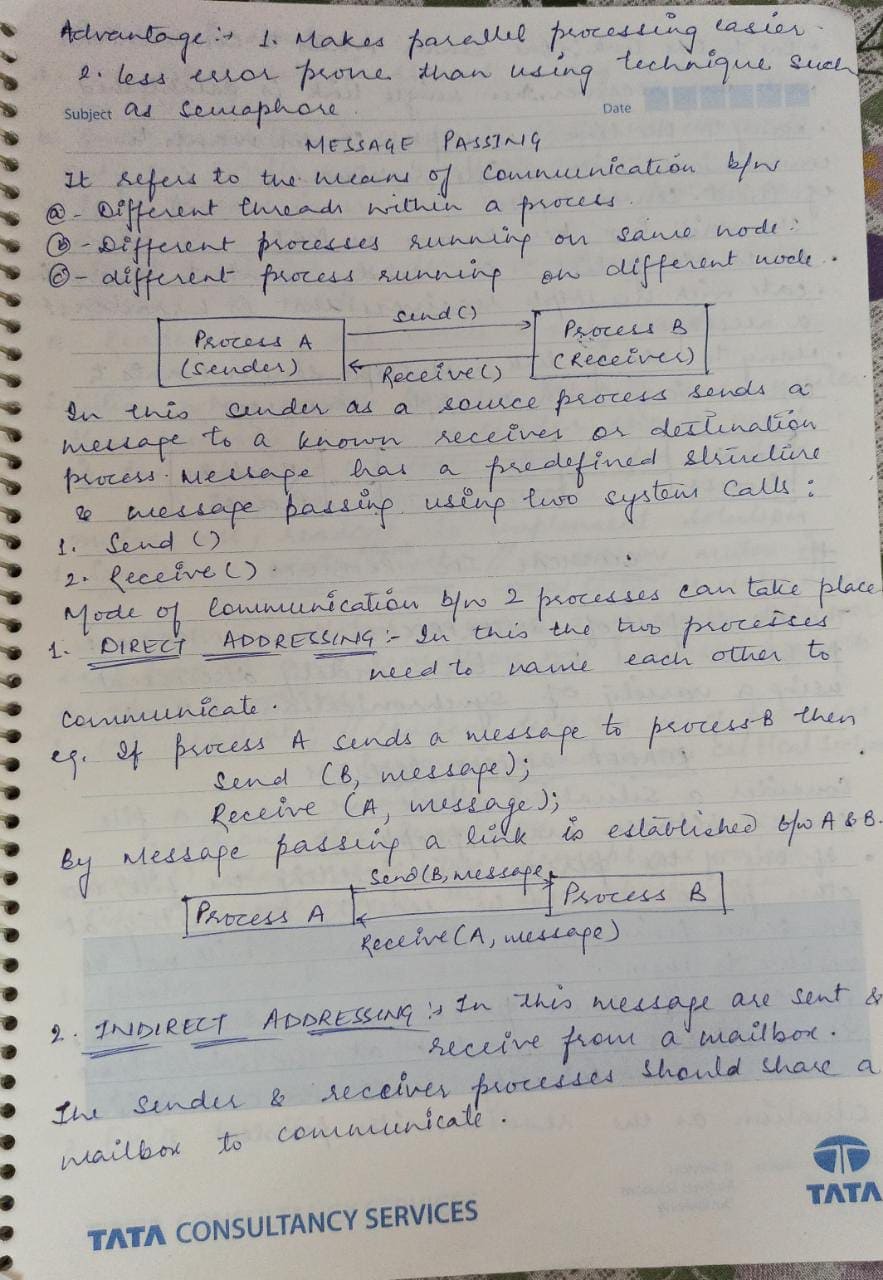 Advantage :→ 1. Makes parallel processing easier.
2. less error prone than using technique such
Subject as semaphore. Date
MESSAGE PASSING
It refers to the means of communication b/w
ⓐ - Different threads within a process.
ⓑ - Different processes running on same node.
ⓒ - different process running on different node.
Send()
Process A Process B
(Sender) (Receiver)
Receive()
In this sender as a source process sends a
message to a known receiver or destination
process. Message has a predefined structure
& message passing using two system calls:
1. Send ()
2. Receive().
Mode of communication b/w 2 processes can take place
1. DIRECT ADDRESSING :- In this the two processes
need to name each other to
communicate.
eg. If process A sends a message to process-B then
Send (B, message);
Receive (A, message);
By Message passing a link is established b/w A & B.
Send(B, message
Process A Process B
Receive(A, message)
2. INDIRECT ADDRESSING :→ In this message are sent &
receive from a mailbox.
The Sender & receiver processes should share a
mailbox to communicate.
TATA
TATA CONSULTANCY SERVICES